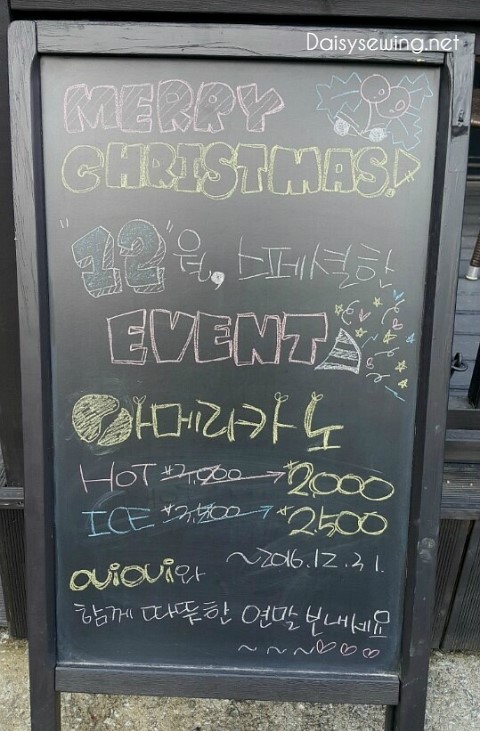 Daisysewing.net
MERRY
CHRISTMAS!
"12"월, 스페셜한
EVENT
아메리카노
HOT → 2000
ICE → 2500
~2016.12.31.
ouioui와
함께 따뜻한 연말 보내세요
~ ~ ~ ♡♡♡